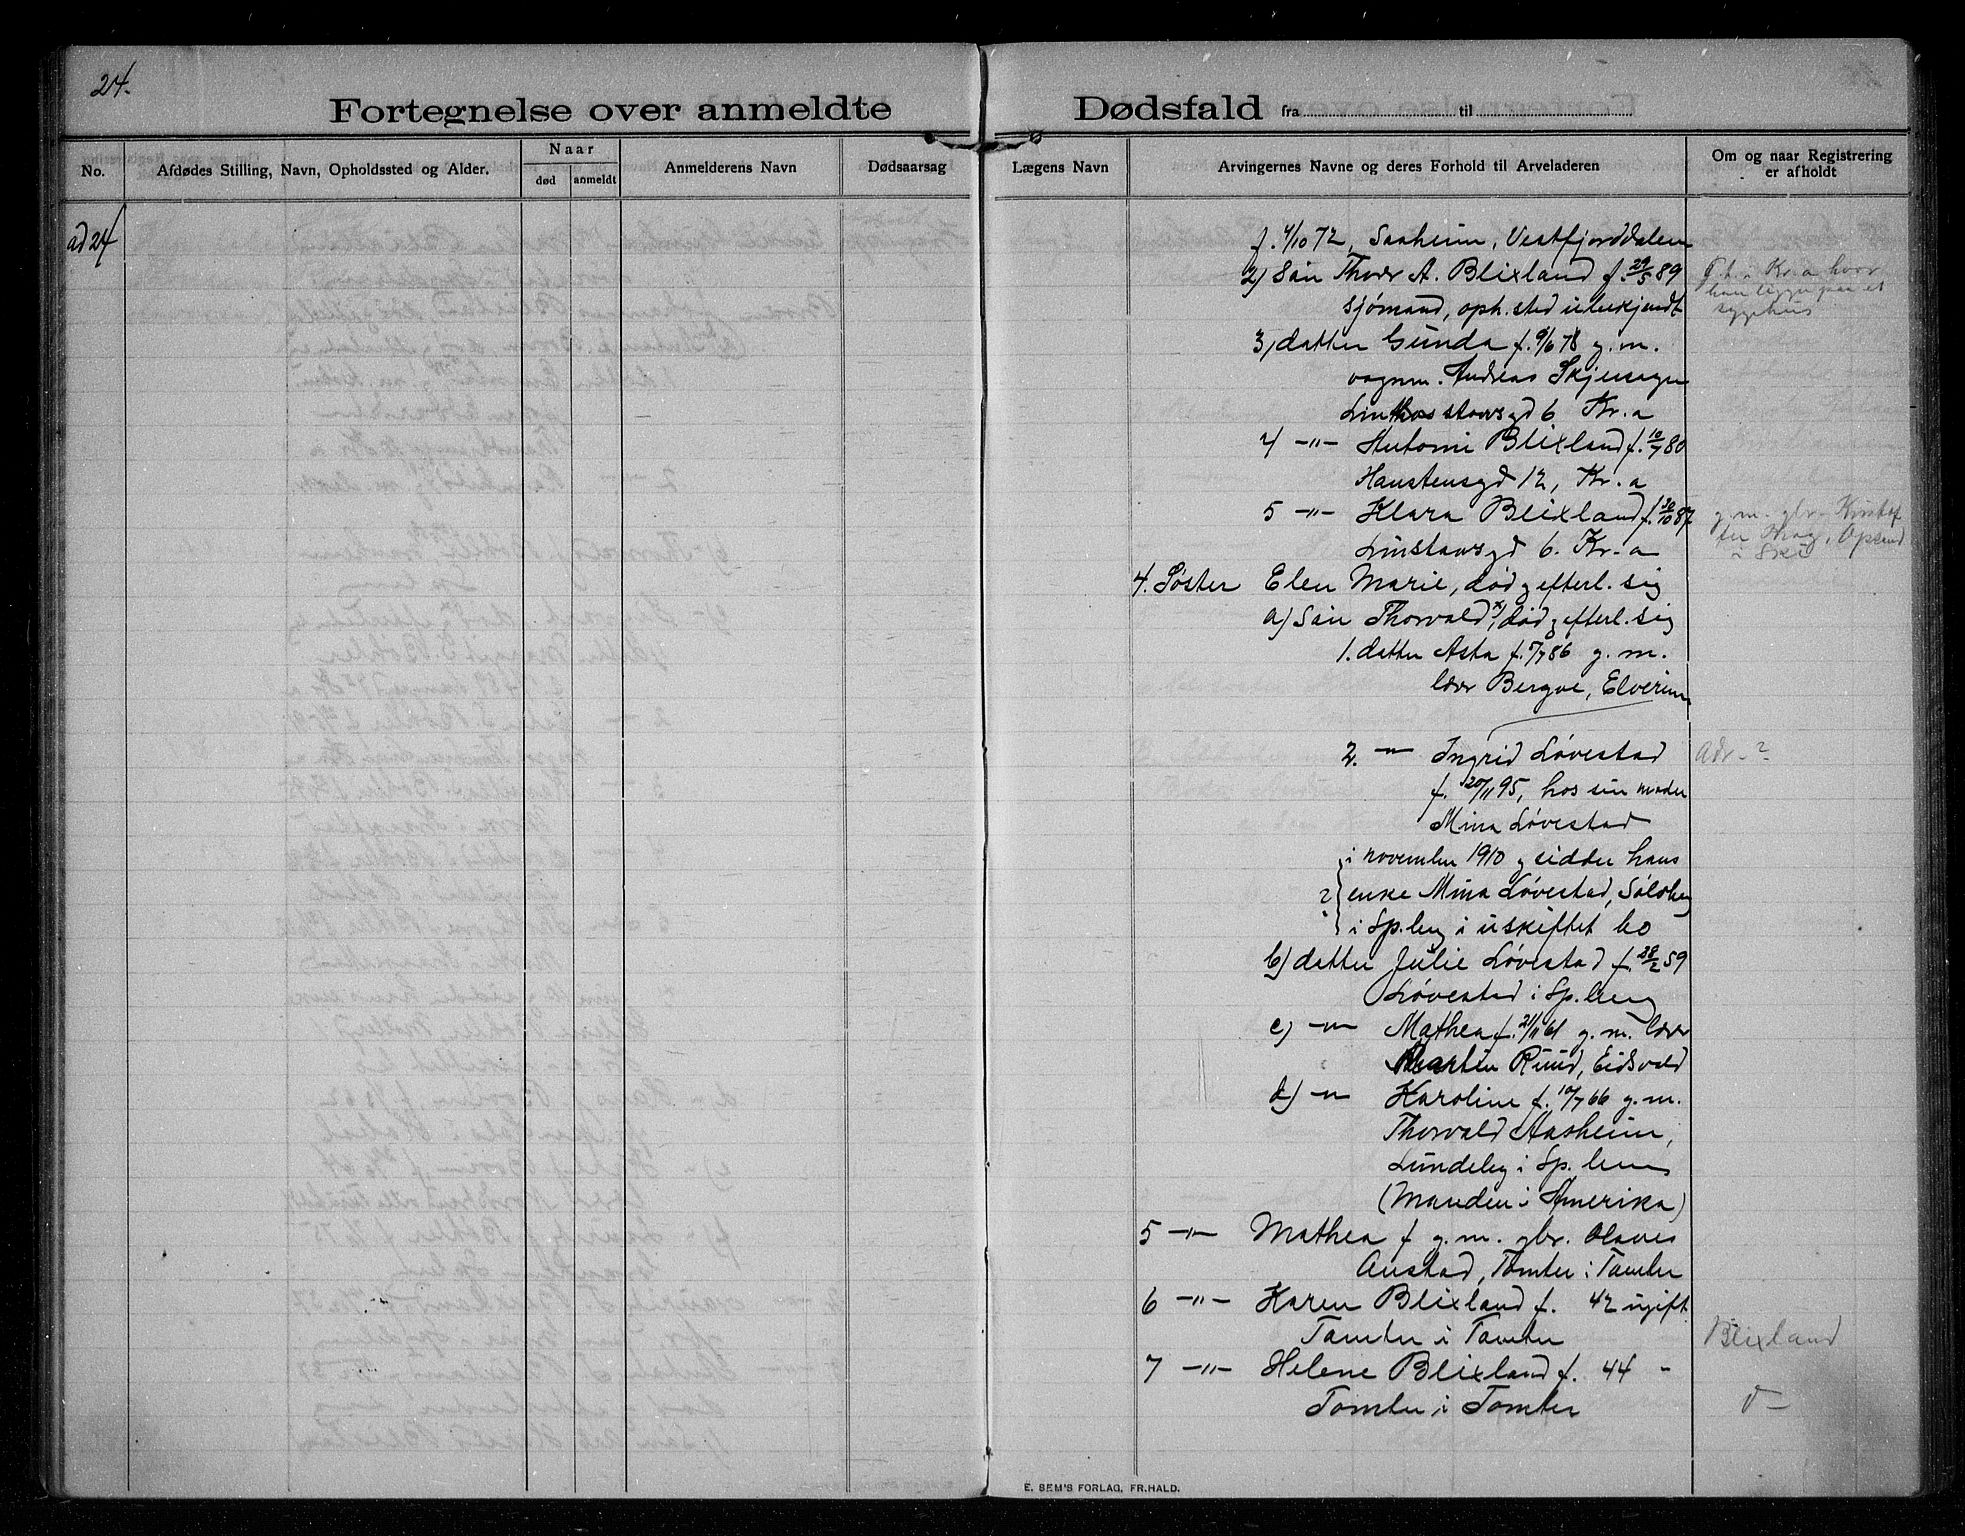 24.
Fortegnelse over anmeldte Dødsfald fra til
No.
Afdødes Stilling, Navn, Opholdssted og Alder.
Naar
død
anmeldt
Anmelderens Navn
Dødsaarsag
Lægens Navn
Arvingernes Navne og deres Forhold til Arveladeren
Om og naar Registrering
er afholdt
ad 24
f. 4/10 72, Saaheim, Vestfjorddalen
2) Søn Thor A. Blixland f. 29/5 89
sjømand, oph.sted ubekjendt
han ligger paa et
sygehus
3, datter Gunda f. 9/6 78 g. m.
vognm. Andreas
6 Kr.a
4 -"- Blixland f. 10/7 80
Haustensgd 12, Kr.a
5 -"- Klara Blixland f. 30/10 87
Linstowsgd 6. Kr.a
g. m. gbr.
i Ski
4. Søster Elen Marie, død g efterl. sig
a) Søn Thorvald x, død g efterl. sig
1. datter Asta f. 5/7 86 g. m.
lærer Bergve, Elverum
2. -"- Ingrid Løvestad
f. 20/11 95, hos sin moder
Mina Løvestad
Adr. ?
i november 1910 g sidder hans
? enke Mina Løvestad, Solberg
i Sp.berg i uskiftet bo
b) datter Julie Løvestad f. 28/2 59
Løvestad i Sp.berg
c) -"- Mathea f. 21/11 61 g. m. lærer
Martin Ruud, Eidsvold
d) -"- Karoline f. 10/7 66 g. m.
Thorvald Aasheim,
Lundeby i Sp.berg
(Manden i Amerika)
5 -"- Mathea f g. m. gbr. Olaves
Austad, Tomter i Tomter
6 -"- Karen Blixland f. 42 ugift
Tomter i Tomter
Blixland
7 -"- Helene Blixland f. 44 -
Tomter i Tomter
E. SEM'S FORLAG, FR.HALD.